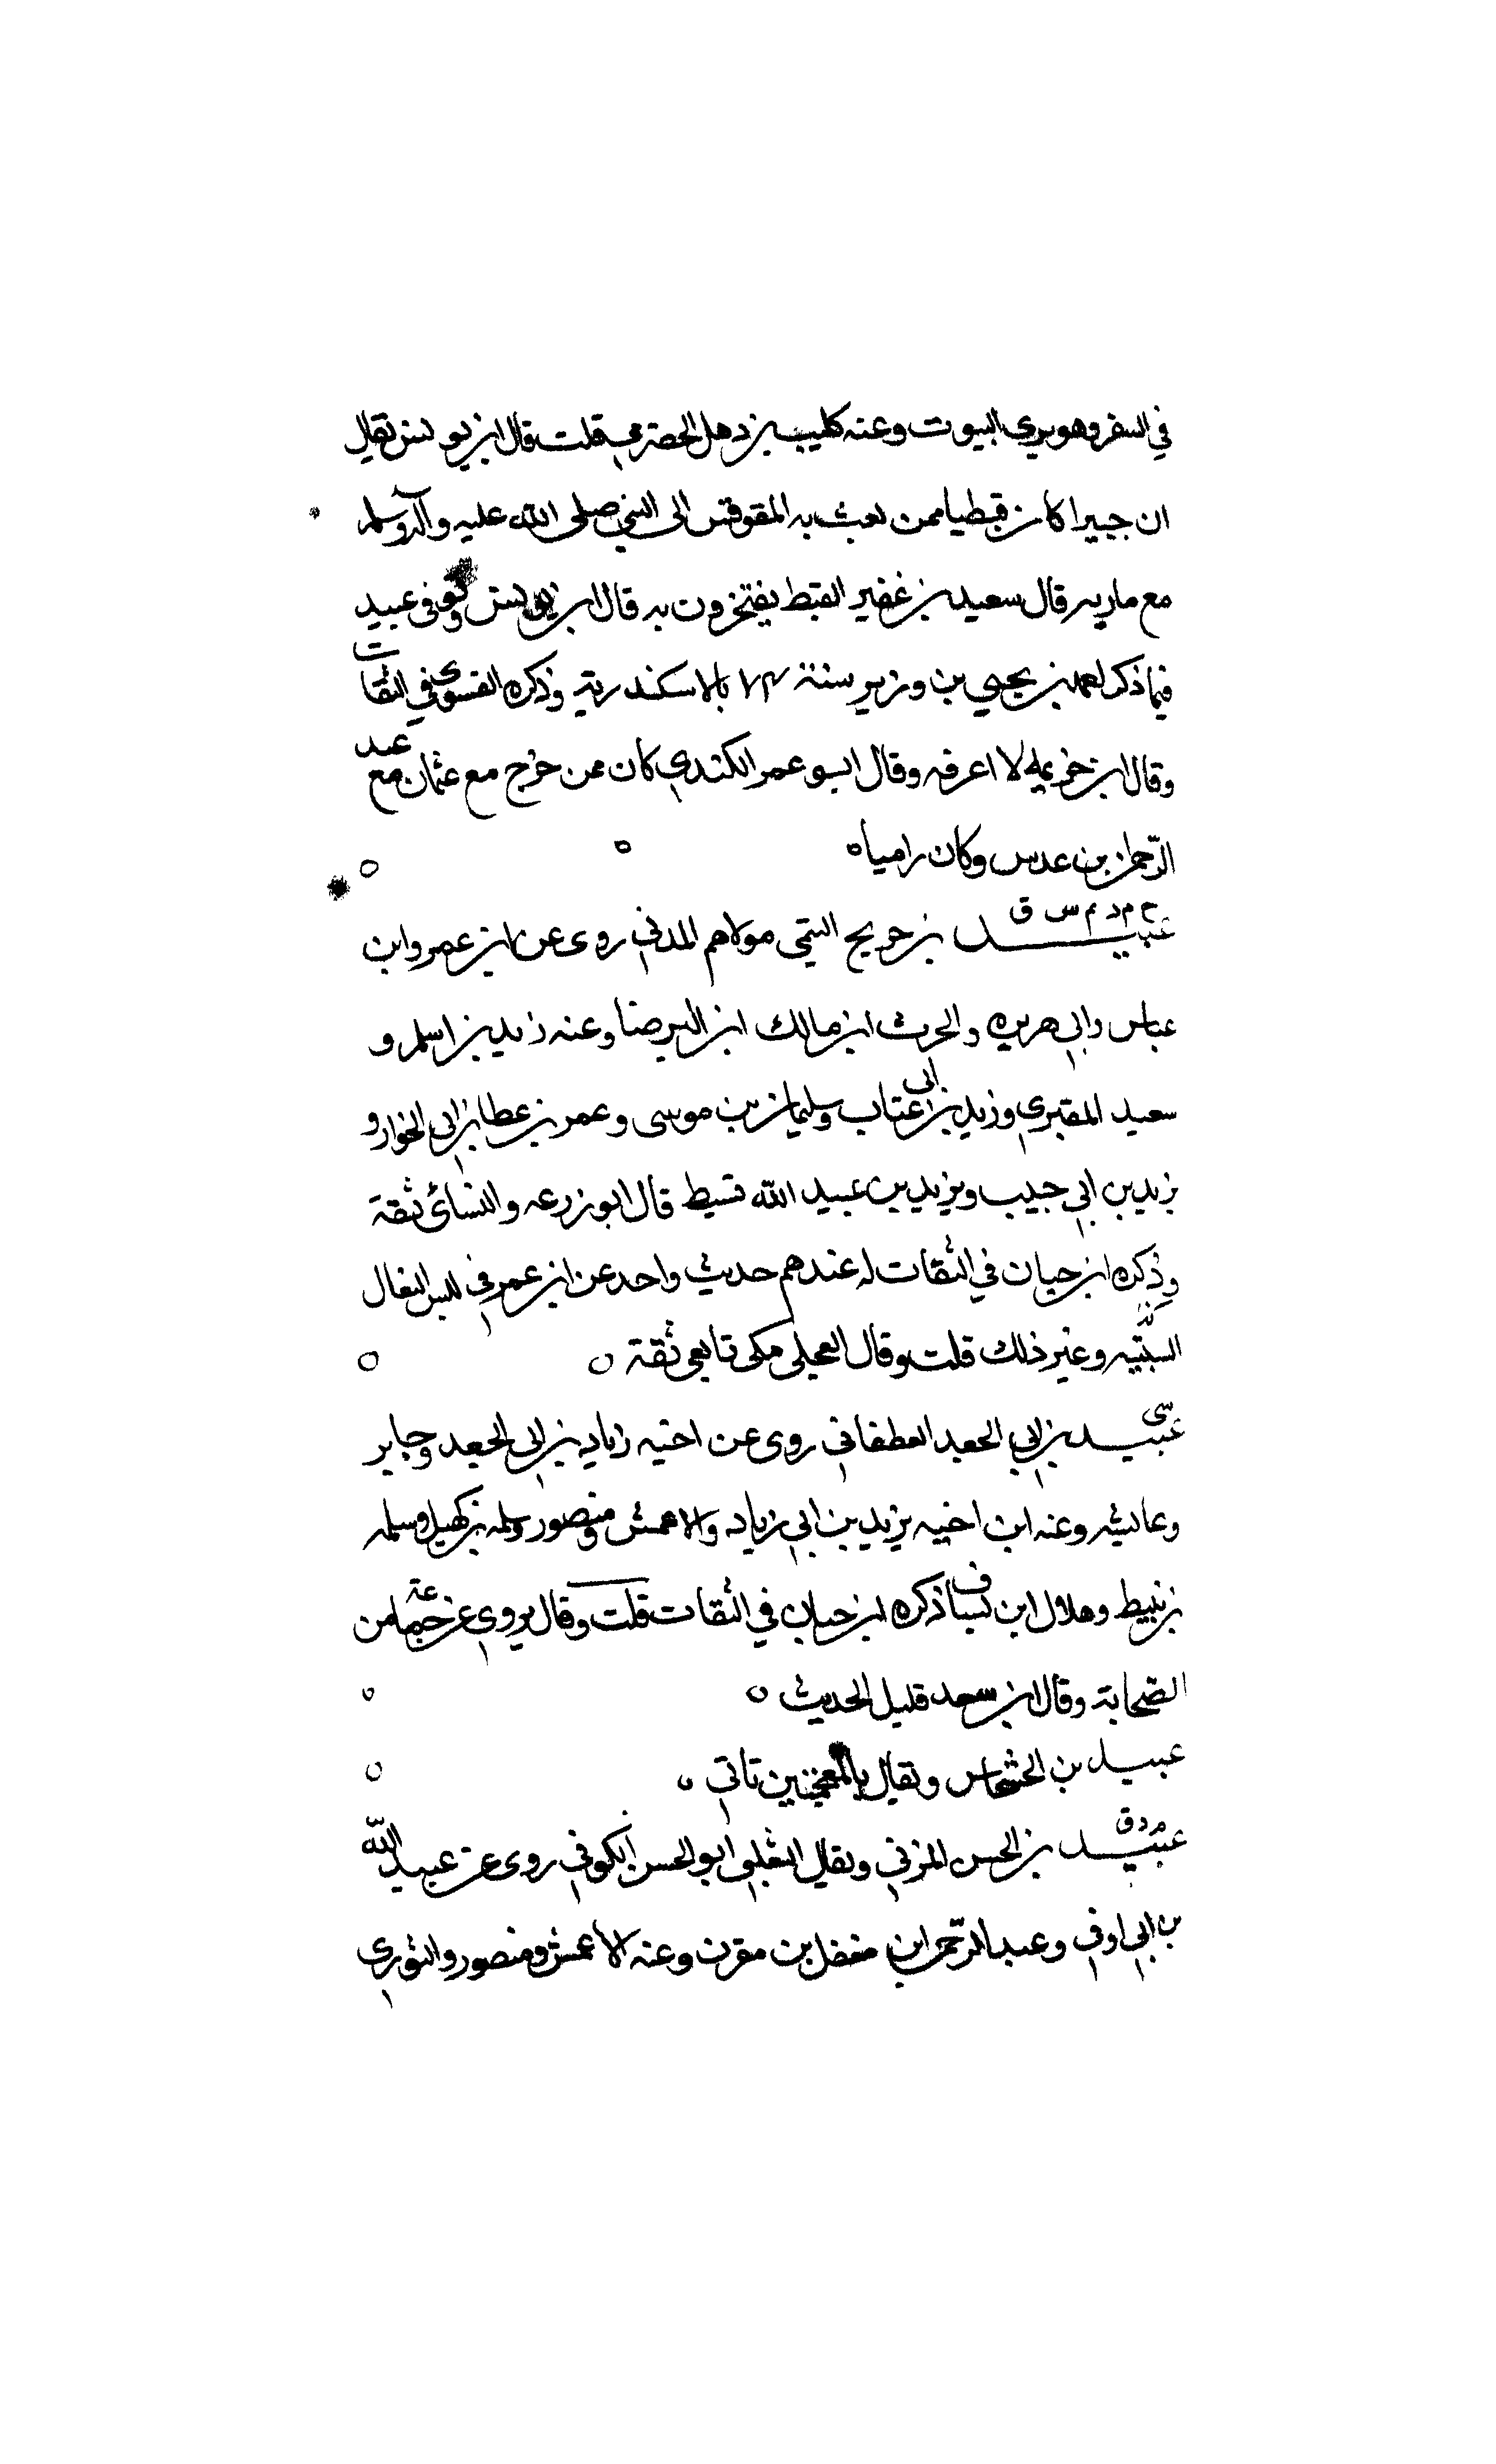 في السفر وهو يرى البيوت وعنه كليب بن ذهل الحضرمي قلت قال ابن يونس يقال
ان جبيرا كان قبطيا ممن بعث به المقوقس الى النبي صلى الله عليه وآله وسلم
مع ماريه قال سعيد بن عفير القبط يفتخرون به قال ابن يونس توفى عبيد
فيما ذكر يحيي بن وزير سنة ٧٤ بالاسكندرية وذكره الفسوي في الثقات
وقال ابن خزيمه لا اعرفه وقال ابو عمر الكندي كان ممن خرج مع عثمان مع عبد
الرّحمن بن عدس وكان راميا ه
خ م د تم س ق
عبيد بن جريج التيمي مولاهم المدني روى عن ابن عمر وابن
عباس وابي هريره والحرث ابن مالك ابن البرصا وعنه زيد بن اسلم و
سعيد المقبري وزيد بن ابي عتاب وسليمان بن موسى وعمر بن عطا بن ابي الخوار و
يزيد بن ابي حبيب ويزيد بن عبيد الله قسيط قال ابو زرعه والنسائى ثقة
وذكره ابن حبان في الثقات له عندهم حديث واحد عن ابن عمر في لبس النعال
السبتيه وغير ذلك قلت وقال العجلى مكى تابعى ثقة ه
سى
عبيد بن ابي الجعد الغطفاني روى عن اخيه زياد بن ابي الجعد وجابر
وعائشه وعنه ابن اخيه يزيد بن ابي زياد والاعمش ومنصور وسلمه بن كهيل وسلمه
بن نبيط وهلال ابن يساف ذكره ابن حبان في الثقات قلت وقال يروي عن جماعة من
الصحابة وقال ابن سعد قليل الحديث ه
عبيد بن الخشخاش ويقال بالمعجمتين تاتي ه
م د ق
عبيد بن الحسن المزني ويقال الثعلبي ابو الحسن الكوفي روى عن عبيد الله
بن ابي اوفي وعبد الرّحمن ابن مغفل بن مقرن وعنه الاعمش ومنصور والثوري